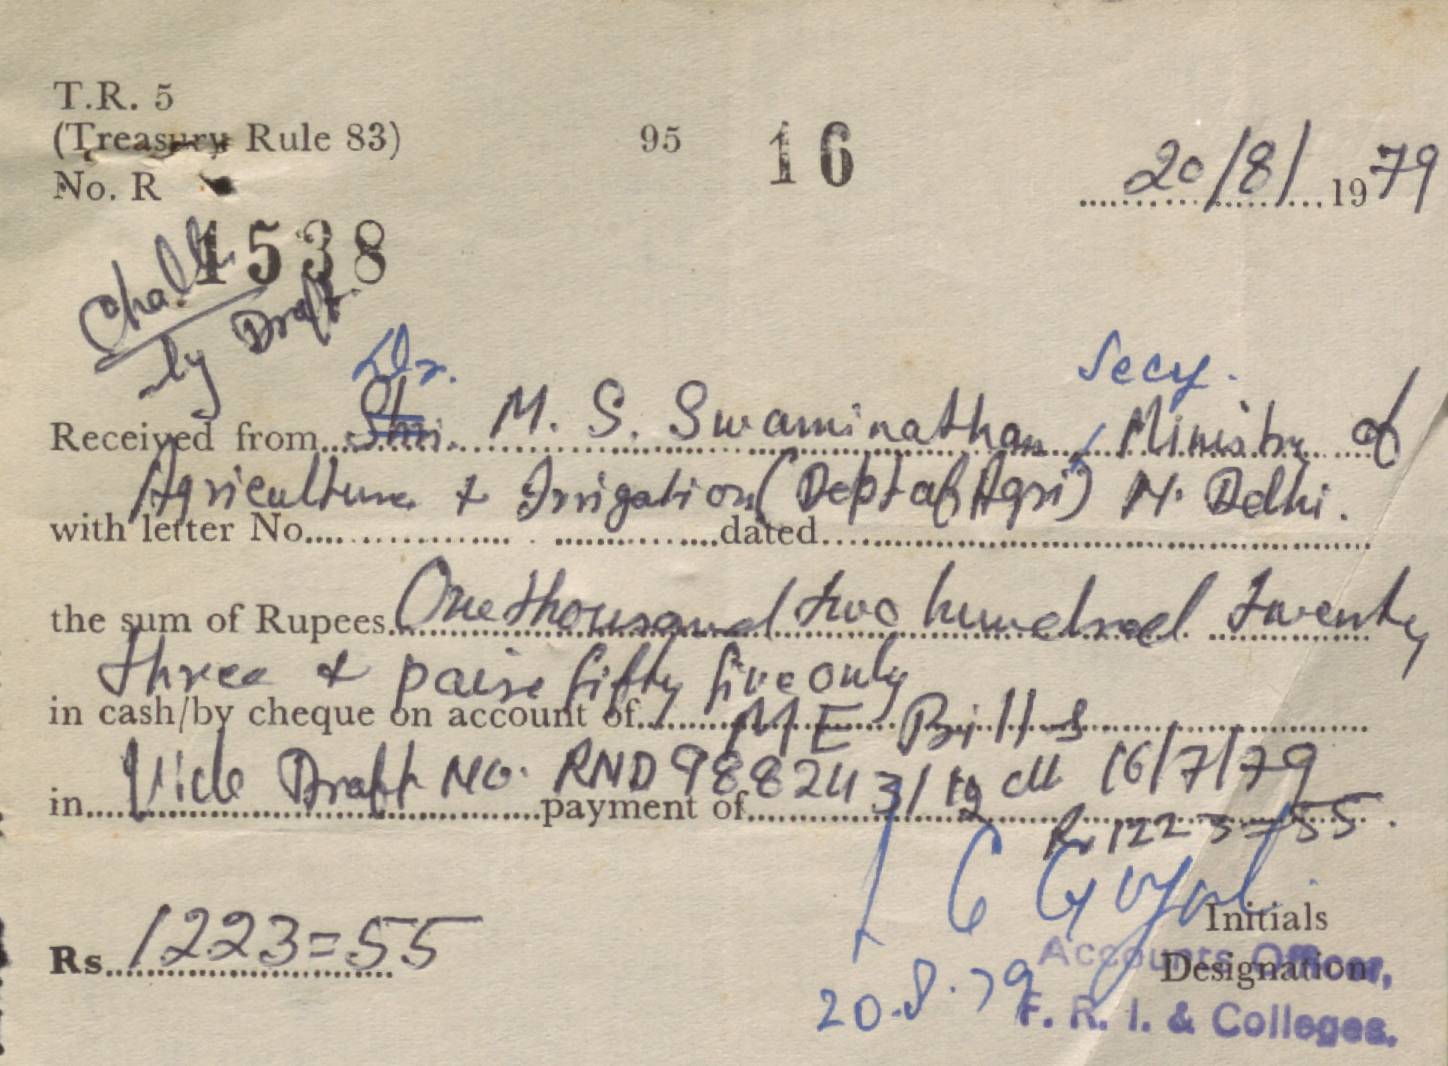 T.R. 5
(Treasury Rule 83) 95 16 20/8/1979
No. R
1538
by Draft
Dr. Secy.
Received from Shri. M. S. Swaminathan, Ministry of
Agriculture & Irrigation (Dept of Agri) N. Delhi.
with letter No. dated
the sum of Rupees One thousand two hundred twenty
three & paise fifty five only
in cash/by cheque on account of ME Bills
Vide Draft No. RND 988243/ dt 16/7/79
in payment of
Rs 1223=55.
Goyal
Initials
Rs 1223=55 Designation
Accounts Officer,
20.8.79
F. R. I. & Colleges.